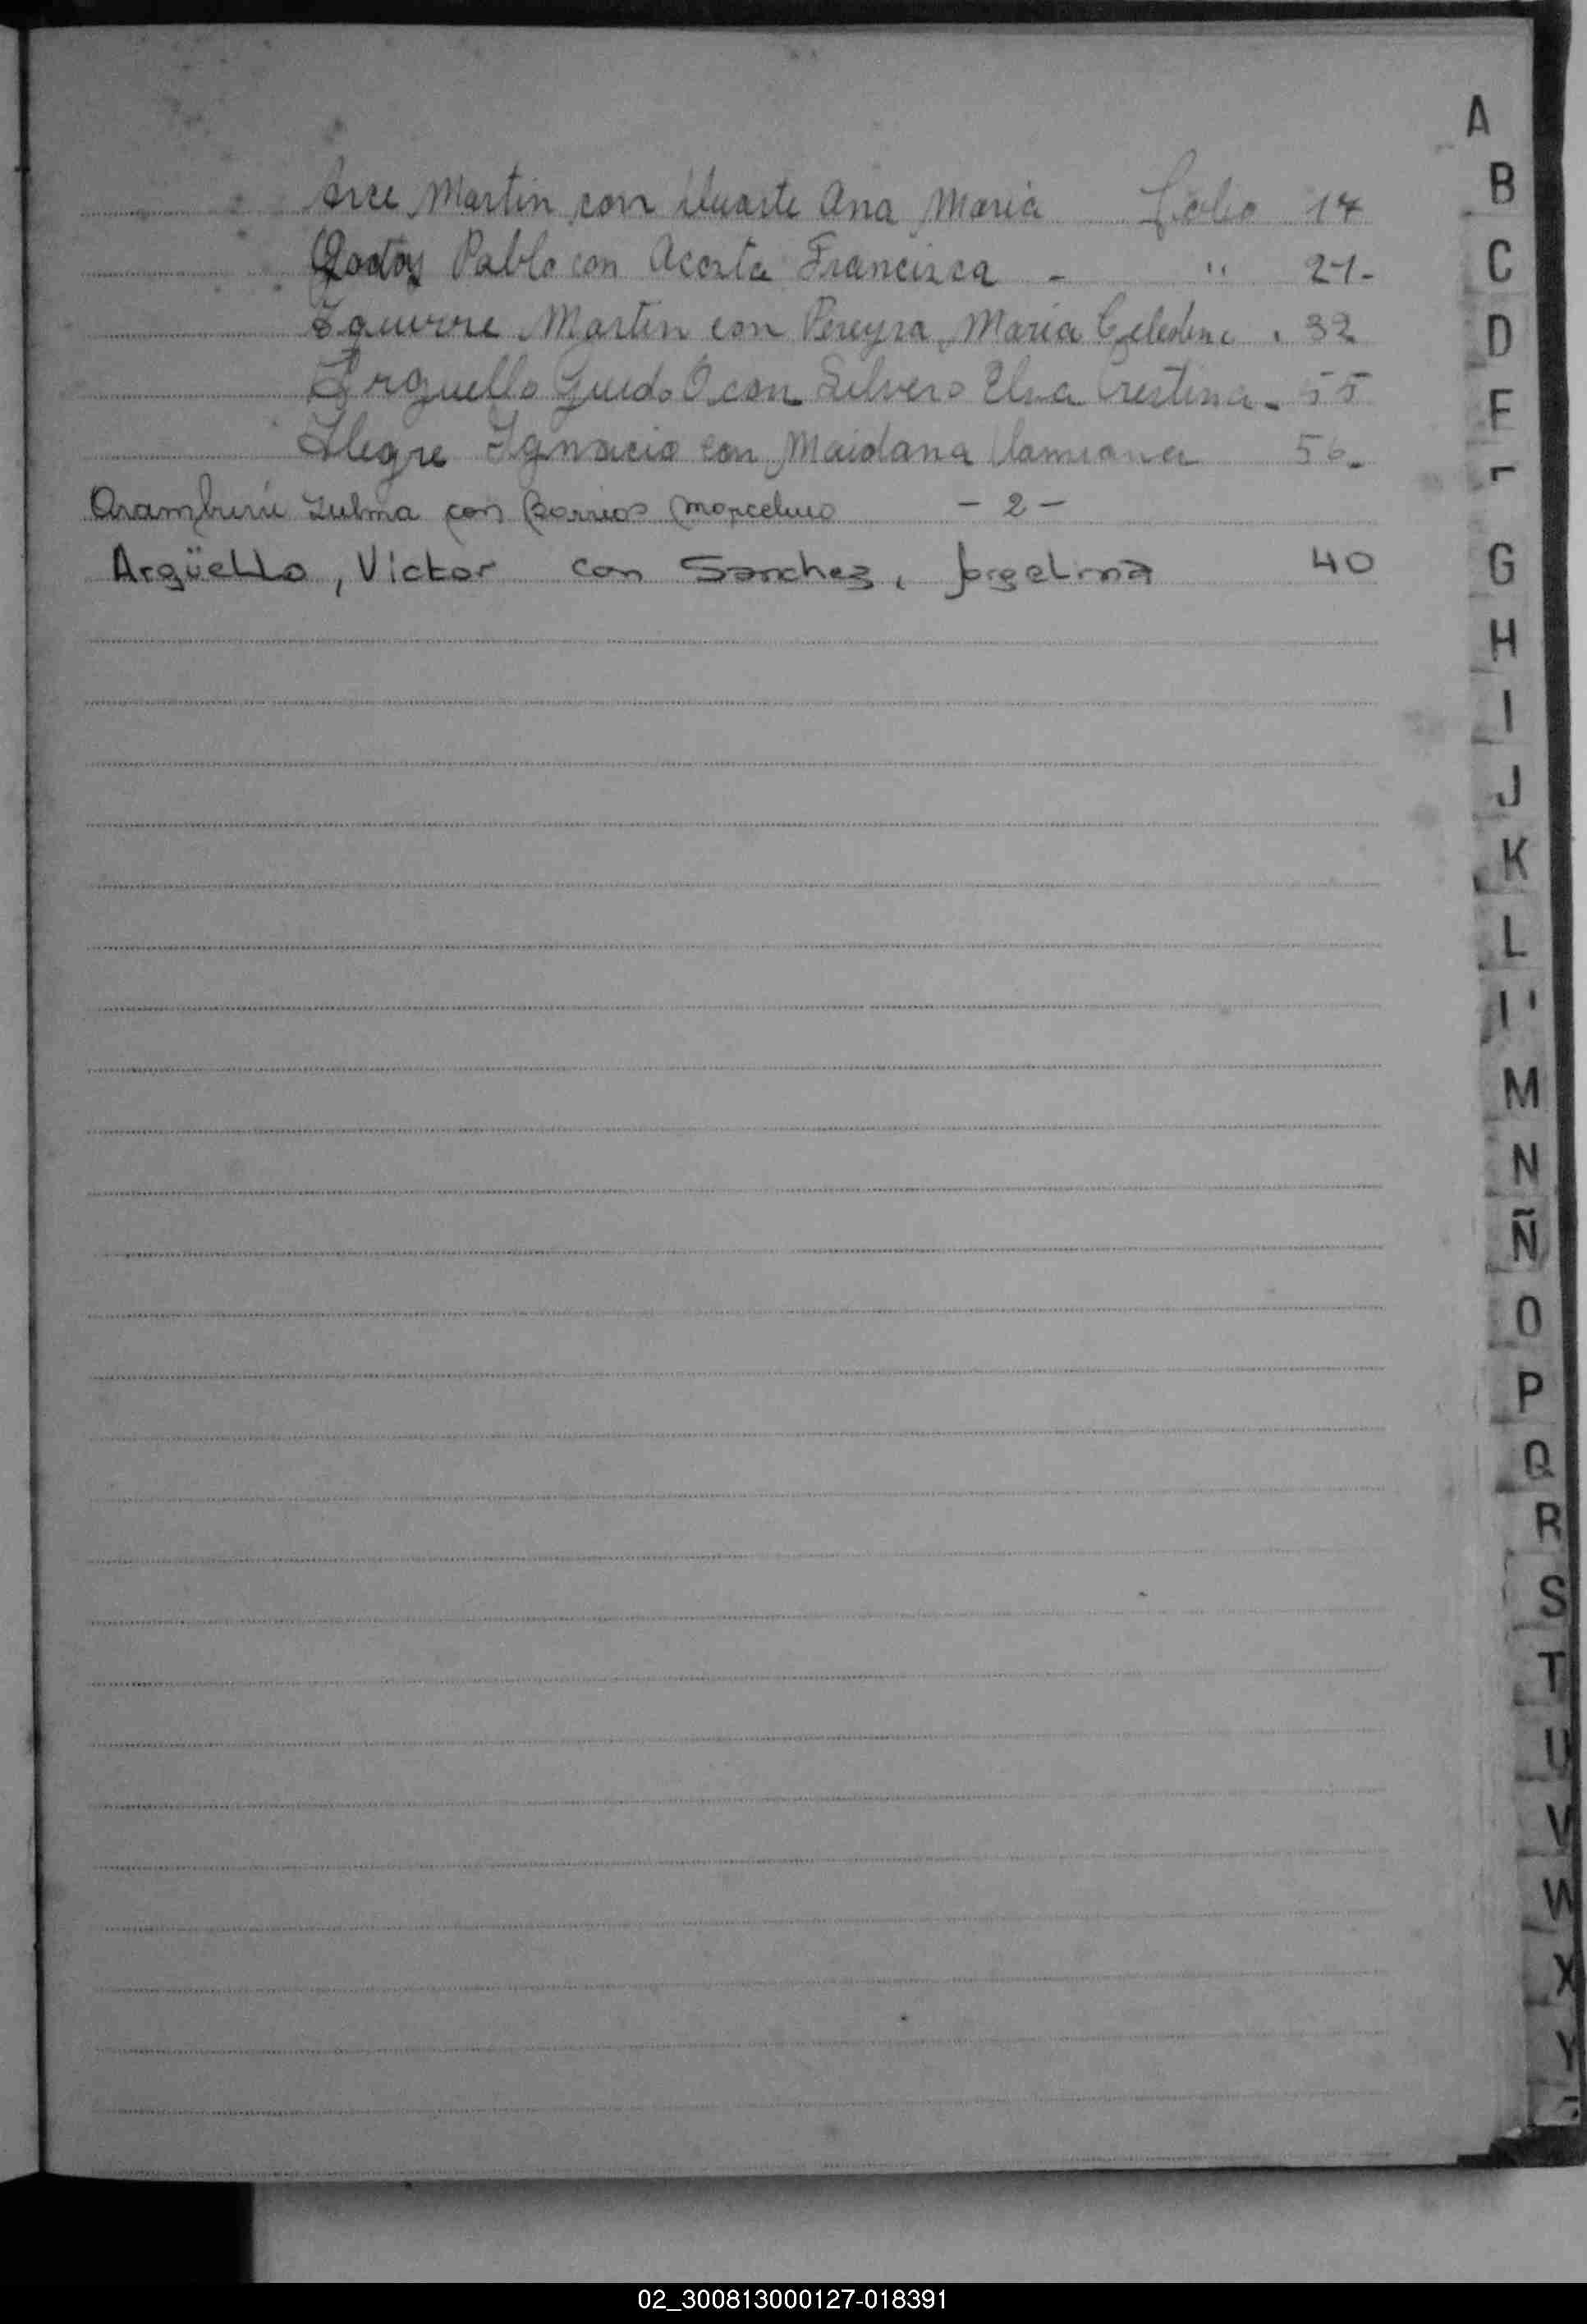 Arce Martin con Duarte Ana Maria Folio 14
Godoy Pablo con Acosta Francisca - " 21-
Martin con Pereyra, Maria Celedina . 32
Arguello Guido O. con Silvero Elsa Cristina - 55
Alegre Ignacio con Maidana Damiana 56-
Aramburú Zulma con Barrios Marcelino - 2 -
Argüello, Victor con Sanchez, Jorgelina 40
A
B
C
D
E
F
G
H
I
J
K
L
M
N
Ñ
O
P
Q
R
S
T
U
V
W
X
Y
02_300813000127-018391